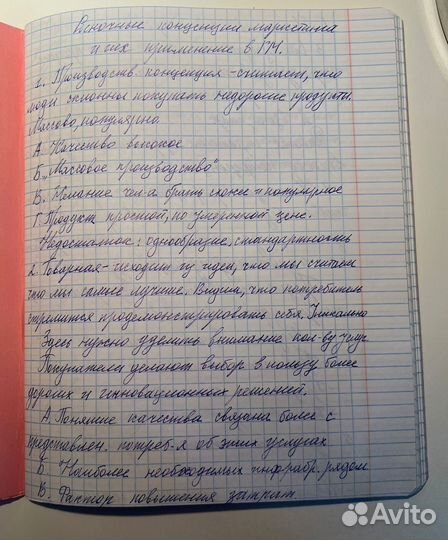 Рыночные концепции маркетинга
и их применение в ГМ.
1. Производств концепция - считает, что
люди склонны покупать недорогие продукты.
Массово, популярно.
А. Качество высокое
Б. "Массовое производство"
В. Желание чел-а брать схожее и популярное
Г. Продукт простой, по умеренной цене.
Недостатков: однообразие, стандартность
2. Товарная - исходит из идеи, что мы считаем
что мы самые лучшие. Видим, что потребитель
стремится продемонстрировать себя. Уникально
Здесь нужно уделить внимание кол-ву услуг
Покупатели делают выбор в пользу более
дорогих и инновационных решений.
А. Понятие качества связана более с
представлен. потреб-я об этих услугах
Б. Наиболее необходимых инфрабр. рядом
В. Фактор повышения затрат
Avito